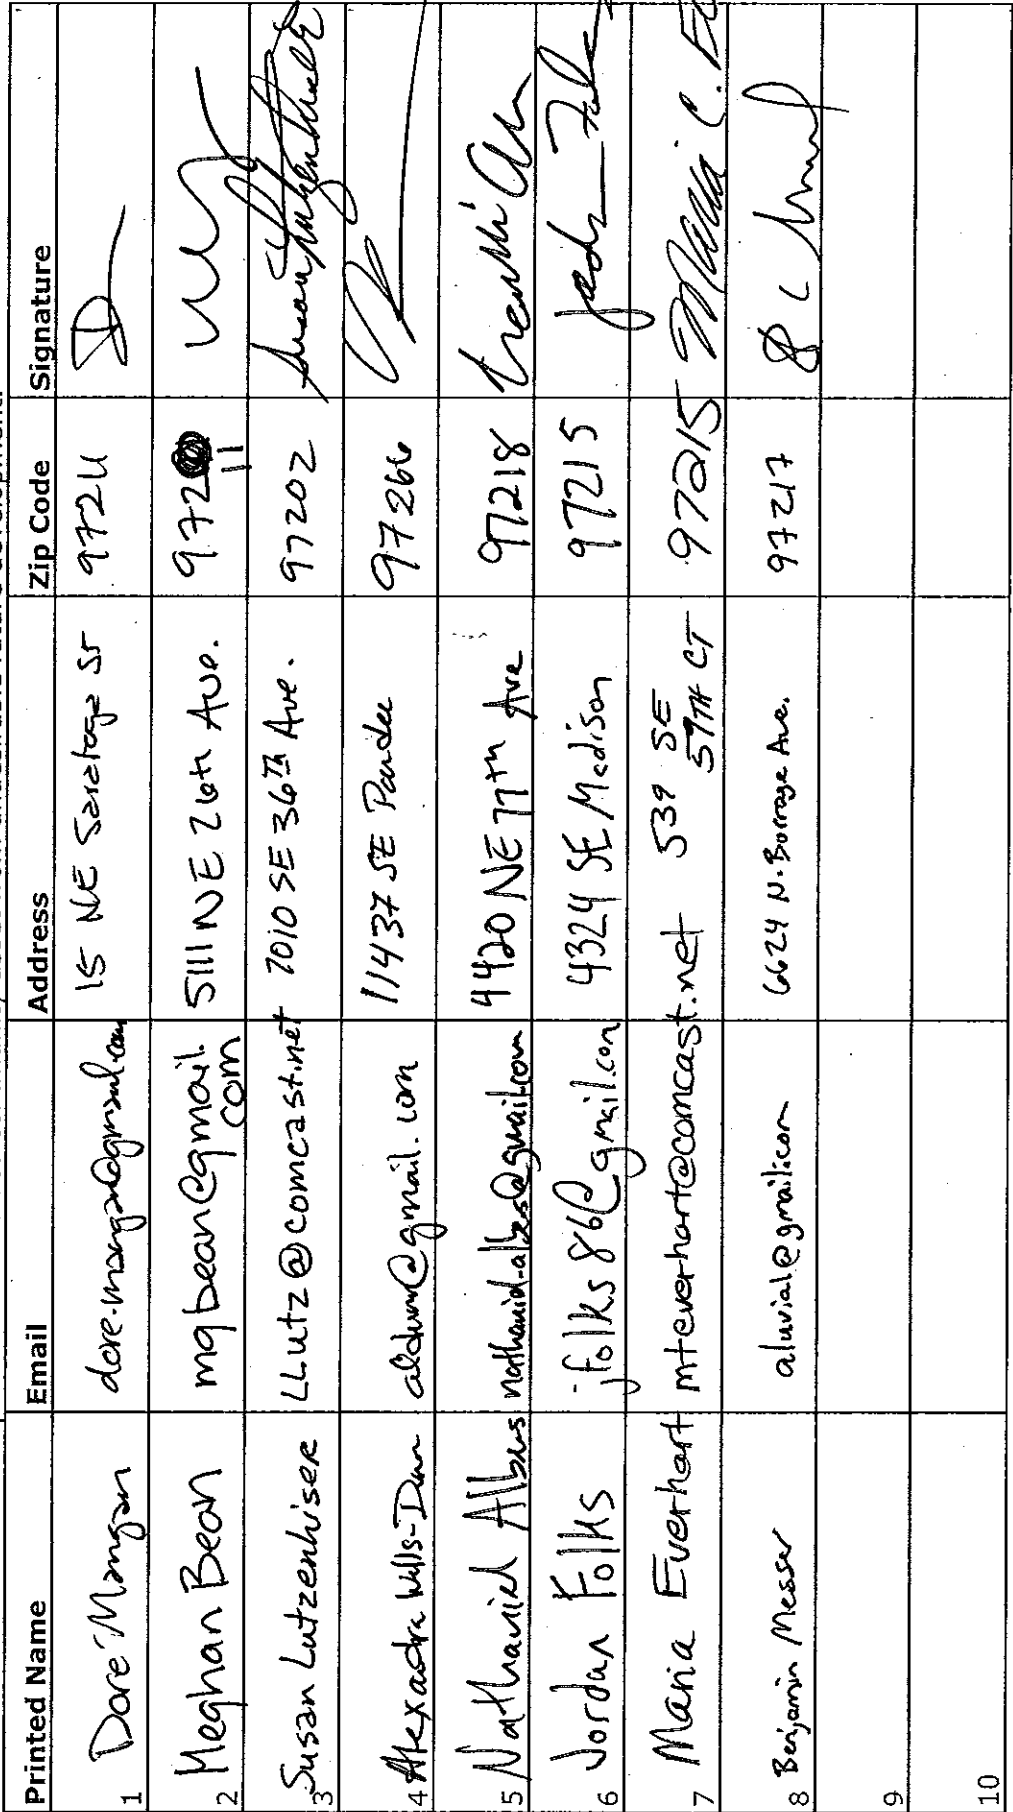 Printed Name Email Address Zip Code Signature
1 Dore Mangan dore.mangan@gmail.com 15 NE Saratoga St 97211
2 Meghan Bean mgbean@gmail.com 5111 NE 26th Ave. 97211
3 Susan Lutzenhiser LLutz@comcast.net 7010 SE 36TH Ave. 97202
4 Alexadra Wills-Dunn @gmail.com 11437 SE Pardee 97266
5 Nathaniel Albus nathaniel.albus@gmail.com 4420 NE 77th Ave 97218
6 Jordan Folks jfolks86@gmail.com 4324 SE Madison 97215
7 Maria Everhart mteverhart@comcast.net 539 SE
59TH CT 97215
8 Benjamin Messer aluvial@gmail.com 6624 N. Borrage Ave. 97217
9
10